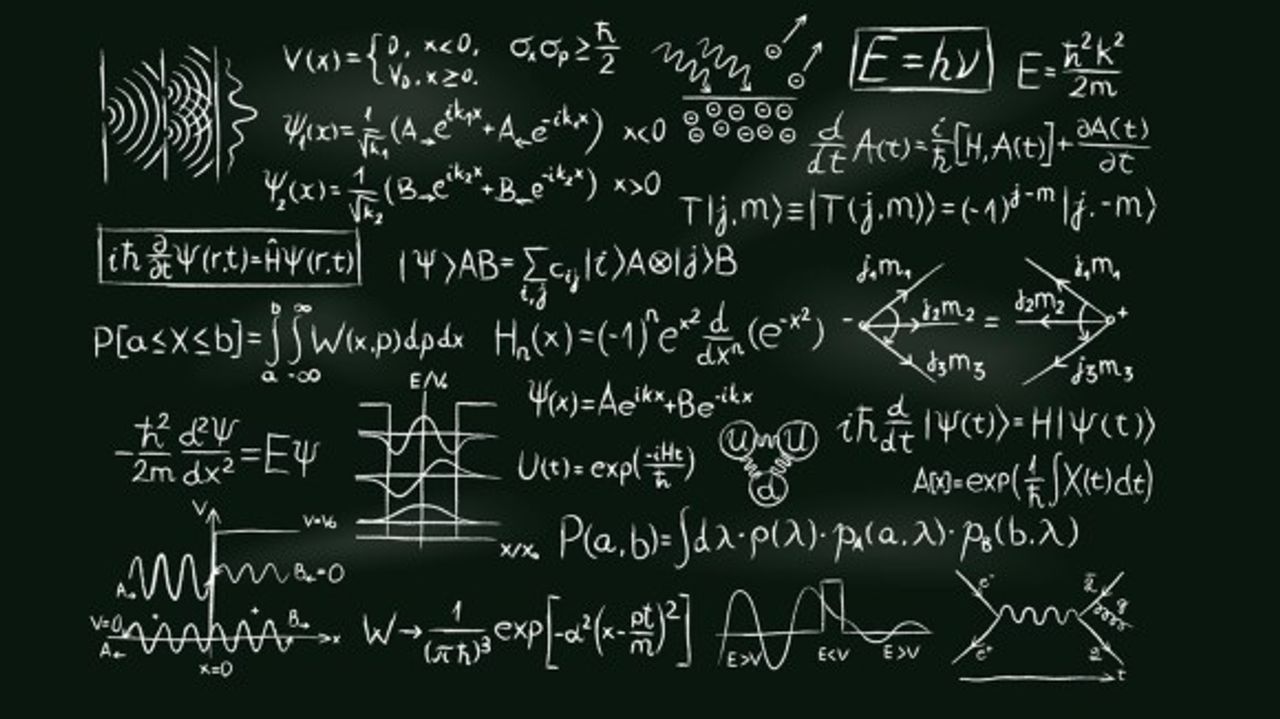 V(x)={0, x<0, V₀, x≥0.
σₓσₚ≥ħ/2
E=hν
E=ħ²k²/2m
Ψ₁(x)=1/√k₁(A→e^ik₁x+A←e^-ik₁x) x<0
d/dt A(t)=i/ħ[H,A(t)]+∂A(t)/∂t
Ψ₂(x)=1/√k₂(B→e^ik₂x+B←e^-ik₂x) x>0
T|j,m⟩≡|T(j,m)⟩=(-1)^j-m|j,-m⟩
iħ ∂/∂t Ψ(r,t)=ĤΨ(r,t)
|Ψ⟩AB=∑i,j cᵢⱼ|i⟩A⊗|j⟩B
j₁m₁ j₁m₁
- j₂m₂ = j₂m₂ +
j₃m₃ j₃m₃
P[a≤X≤b]=∫ₐᵇ∫₋∞^∞W(x,p)dpdx
Hₙ(x)=(-1)ⁿe^x² d/dxⁿ(e^-x²)
E/V₀
Ψ(x)=Ae^ikx+Be^-ikx
-ħ²/2m d²Ψ/dx²=EΨ
u u
d
iħ d/dt|Ψ(t)⟩=H|Ψ(t)⟩
U(t)=exp(-iHt/ħ)
A[x]=exp(1/ħ∫X(t)dt)
x/x₀
P(a,b)=∫dλ·ρ(λ)·p_A(a,λ)·p_B(b,λ)
V
V=V₀
A→ B←=0
V=0 B→
A← x
x=0
W→1/(πħ)³exp[-α²(x-pt/m)²]
E>V E<V E>V
e⁻
g
t